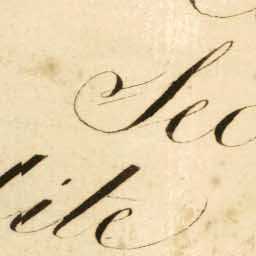 Sec
ite